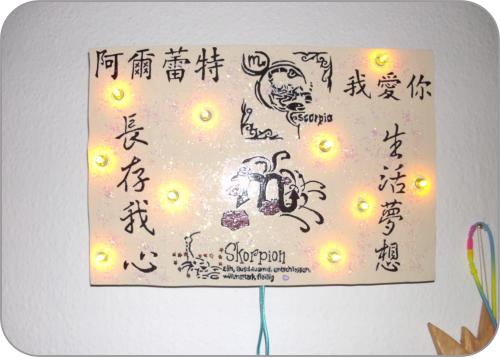 阿爾蕾特
我愛你
scorpio
長存我心
生活夢想
Skorpion
zäh, ausdauernd, entschlossen
willensstark, fleißig